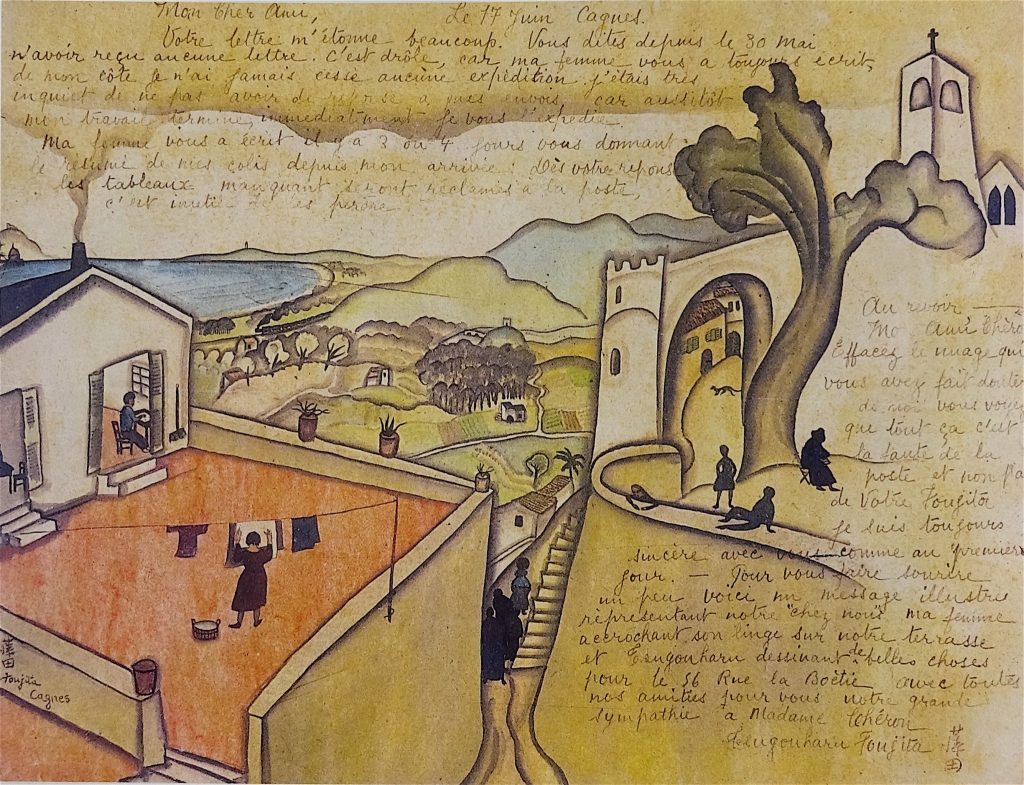 Mon Cher Ami, Le 17 Juin Cagnes.
Votre lettre m'étonne beaucoup. Vous dites depuis le 30 Mai
n'avoir reçu aucune lettre. C'est drôle, car ma femme vous a toujours écrit,
de mon côté je n'ai jamais cessé aucune expédition j'étais très
inquiet de ne pas avoir de réponse a mes envois car aussitôt
mon travail terminé, immédiatment je vous l'expédie.
Ma femme vous a écrit il y a 3 ou 4 jours vous donnant
le résumé de mes colis depuis mon arrivée. Dès votre reponse
les tableaux manquant seront réclamés à la poste,
c'est inutile de les perdre
Au revoir
Mon Ami Chéron
Effacez le nuage qui
vous avez fait douter
de moi vous voyez
que tout ça c'est
la faute de la
poste et non pas
de Votre Foujita
je suis toujours
sincère avec vous comme au premier
jour. — Pour vous faire sourire
un peu voici un message illustré
représentant notre "chez nous" ma femme
accrochant son linge sur notre terrasse
et Tsugouharu dessinant de belles choses
pour le 56 Rue la Boëtie avec toutes
nos amitiés pour vous notre grande
sympathie a Madame Chéron
Tsugouharu Foujita
Foujita
Cagnes